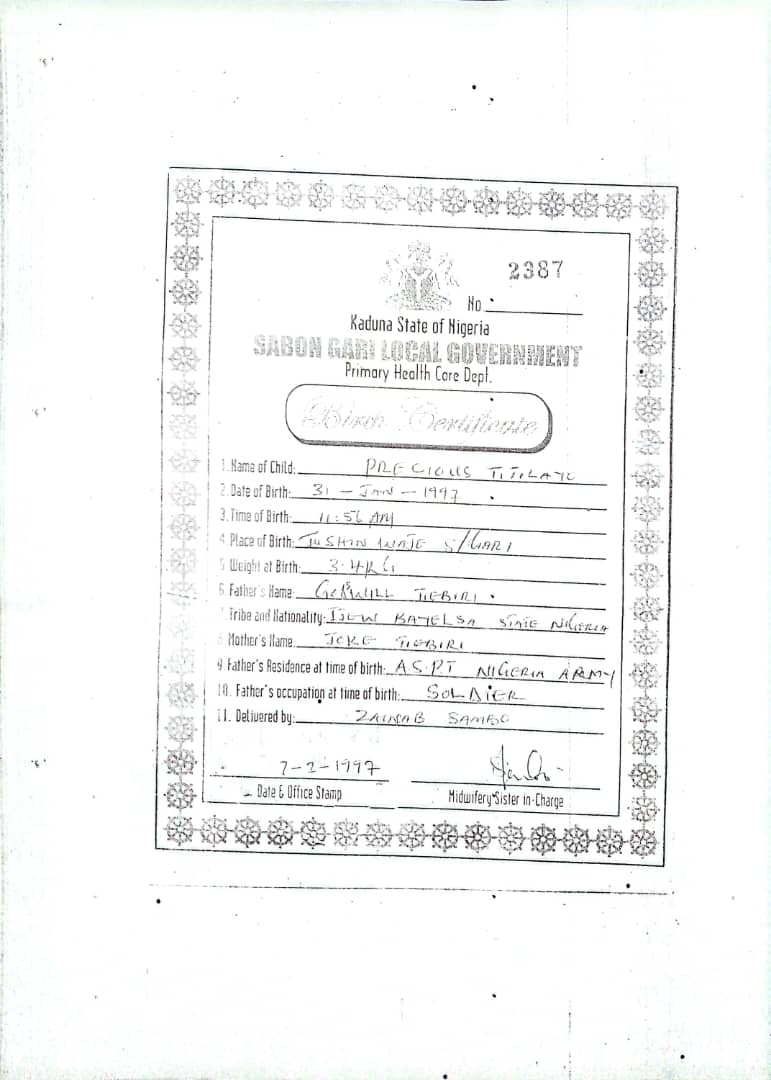 2387
No
Kaduna State of Nigeria
SABON GARI LOCAL GOVERNMENT
Primary Health Care Dept.
Birth Certificate
1. Name of Child: PRECIOUS TITILAYO
2. Date of Birth: 31 - JAN - 1997
3. Time of Birth: 11:56 AM
4. Place of Birth: S/GARI
5. Weight at Birth: 3.4KG
6. Father's Name: TIEBIRI
7. Tribe and Nationality: BAYELSA STATE NIGERIA
8. Mother's Name. JOKE TIEBIRI
9. Father's Residence at time of birth: A.S.P.T NIGERIA ARMY
10. Father's occupation at time of birth: SOLDIER
11. Delivered by: ZAINAB SAMBO
7-2-1997
Date & Office Stamp
Midwifery Sister in-Charge